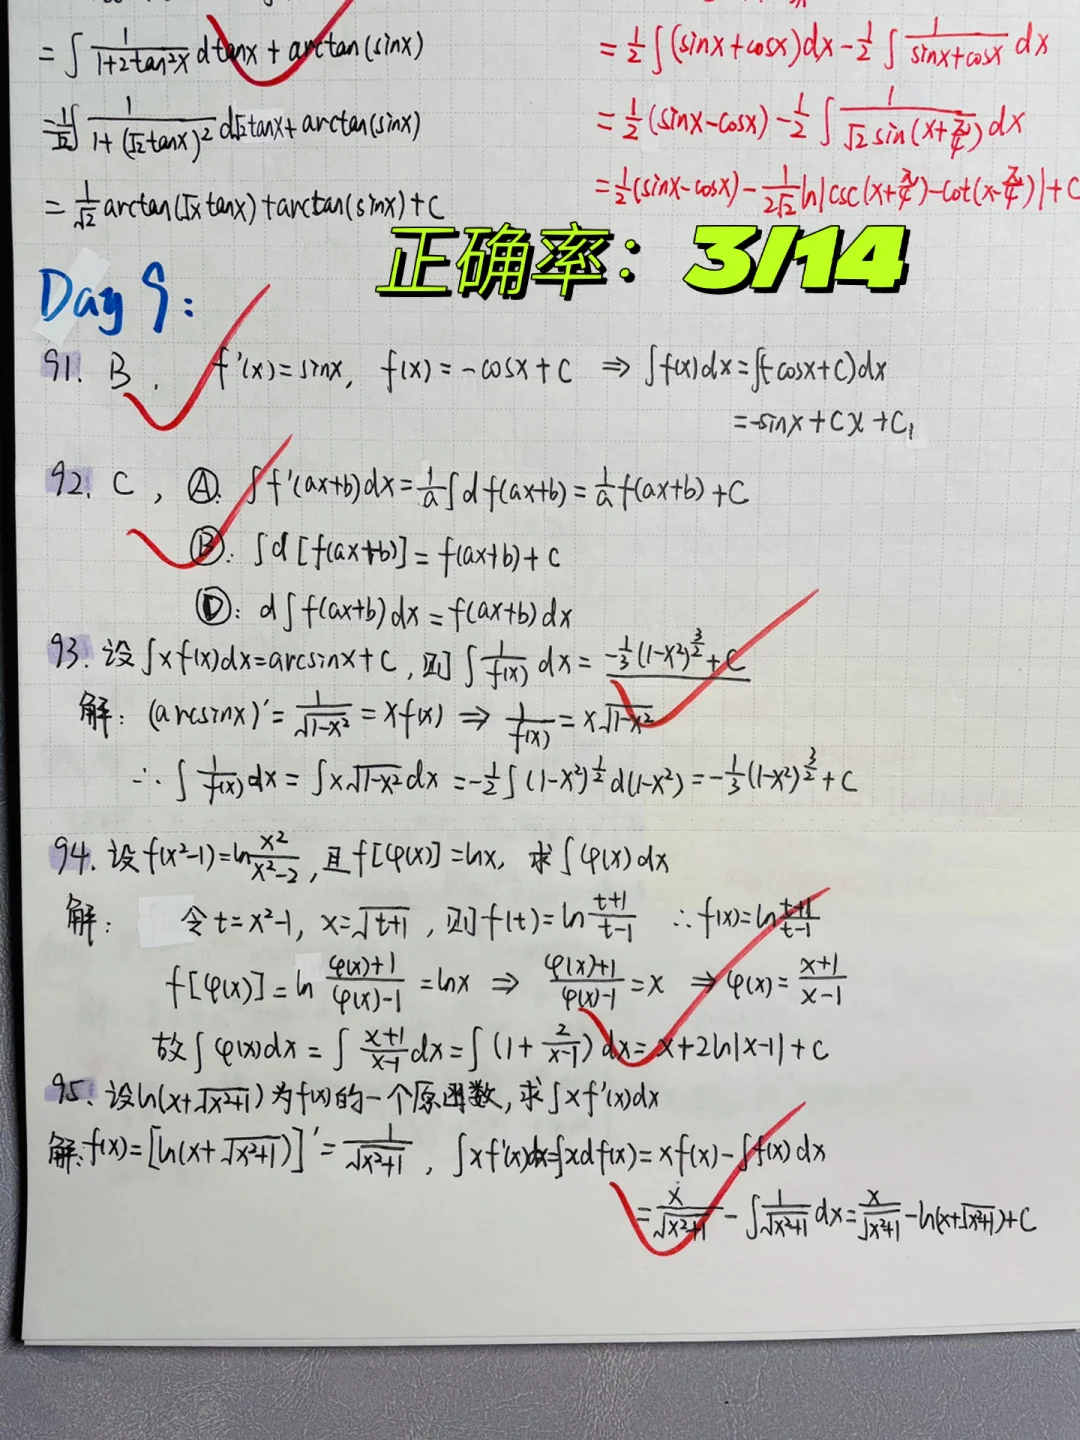 = ∫ 1/(1+2tan²x) dtanx + arctan(sinx)
= 1/√2 ∫ 1/(1+(√2tanx)²) d√2tanx + arctan(sinx)
= 1/√2 arctan(√x tanx) + arctan(sinx) + C
= 1/2 ∫ (sinx+cosx)dx - 1/2 ∫ 1/(sinx+cosx) dx
= 1/2 (sinx-cosx) - 1/2 ∫ 1/(√2 sin(x+π/4)) dx
= 1/2 (sinx-cosx) - 1/(2√2) ln|csc(x+π/4)-cot(x-π/4)| + C
正确率：3/14
Day 9:
91. B. f'(x)=sinx, f(x)=-cosx+C ⇒ ∫f(x)dx=∫(-cosx+C)dx
=-sinx+Cx+C₁
92. C, Ⓐ. ∫f'(ax+b)dx=1/a∫df(ax+b)=1/a f(ax+b)+C
Ⓑ: ∫d[f(ax+b)]=f(ax+b)+C
Ⓓ: d∫f(ax+b)dx=f(ax+b)dx
93. 设∫xf(x)dx=arcsinx+C, 则∫1/f(x) dx= -1/3(1-x²)^(3/2)+C
解: (arcsinx)'=1/√(1-x²)=xf(x) ⇒ 1/f(x)=x√(1-x²)
∴ ∫1/f(x) dx=∫x√(1-x²)dx=-1/2∫(1-x²)^(1/2)d(1-x²)=-1/3(1-x²)^(3/2)+C
94. 设f(x²-1)=ln x²/(x²-2), 且f[φ(x)]=lnx, 求∫φ(x)dx
解: 令t=x²-1, x=√(t+1), 则f(t)=ln (t+1)/(t-1) ∴f(x)=ln (t+1)/(t-1)
f[φ(x)]=ln (φ(x)+1)/(φ(x)-1)=lnx ⇒ (φ(x)+1)/(φ(x)-1)=x ⇒ φ(x)=(x+1)/(x-1)
故∫φ(x)dx=∫(x+1)/(x-1) dx=∫(1+2/(x-1))dx=x+2ln|x-1|+C
95. 设ln(x+√(x²+1))为f(x)的一个原函数, 求∫xf'(x)dx
解: f(x)=[ln(x+√(x²+1))]'=1/√(x²+1), ∫xf'(x)dx=∫xdf(x)=xf(x)-∫f(x)dx
=x/√(x²+1)-∫1/√(x²+1) dx=x/√(x²+1)-ln(x+√(x²+1))+C